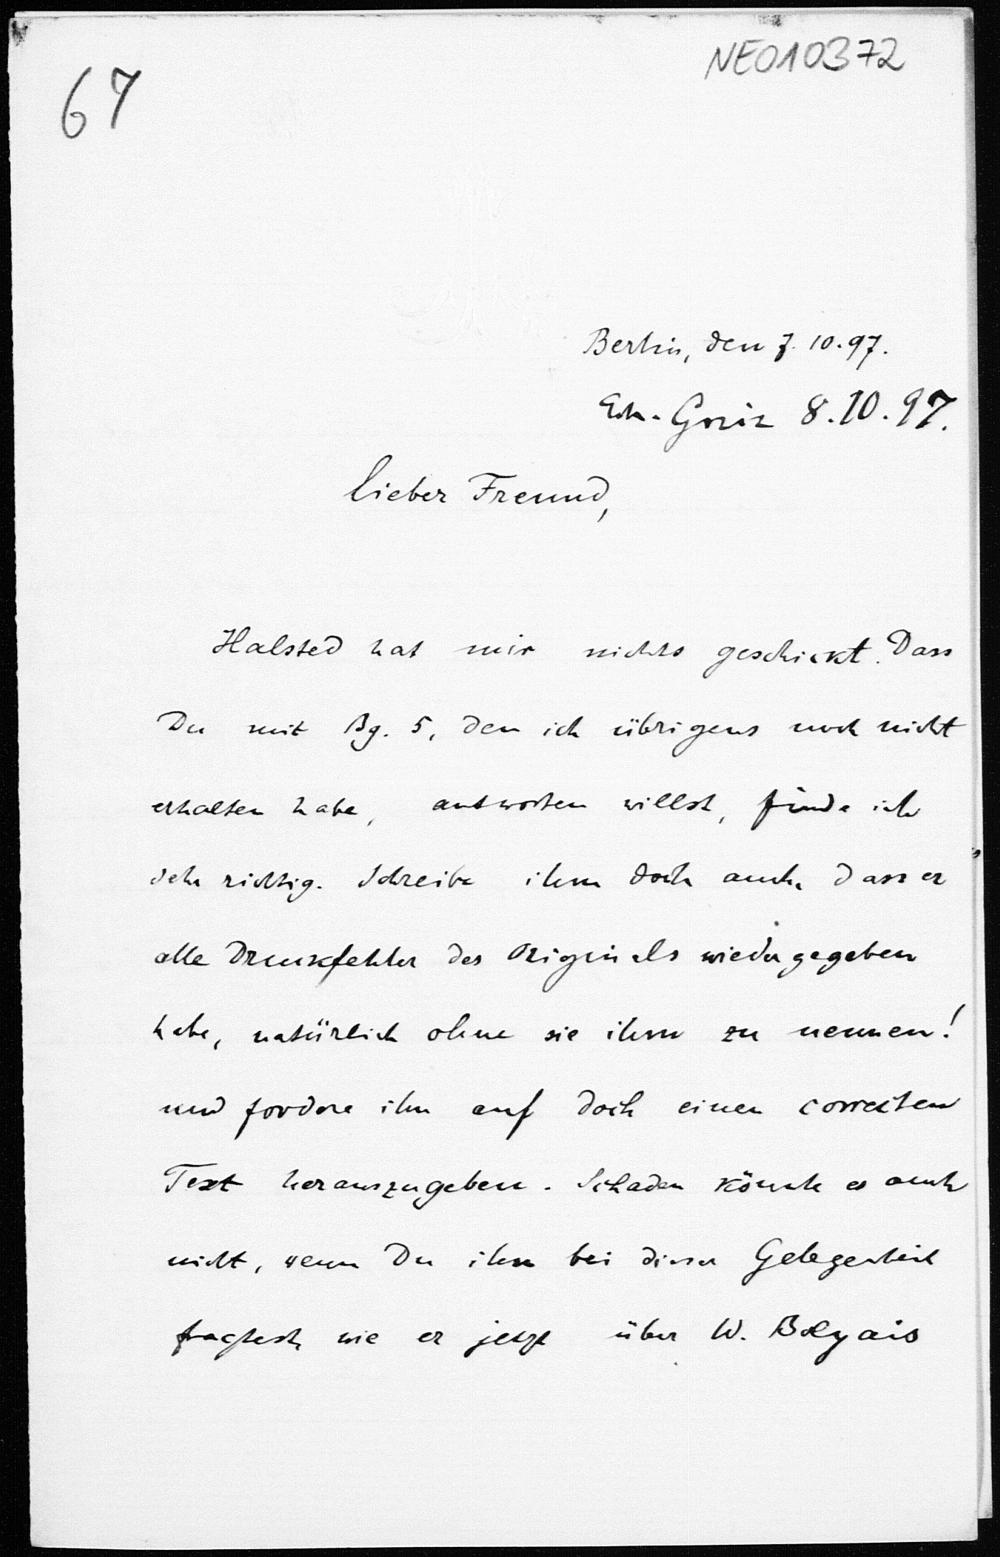 67
NE010372
Berlin, den 7. 10. 97.
8. 10. 97.
Lieber Freund,
Halsted hat mir nichts geschickt. Dass
Du mit Bg. 5, den ich übrigens noch nicht
erhalten habe, antworten willst, finde ich
sehr richtig. Schreibe ihm doch auch dass er
alle Druckfehler des Originals wiedergegeben
habe, natürlich ohne sie ihm zu nennen!
und fordere ihn auf doch einen correcten
Text herauszugeben. Schaden könnte es auch
nicht, wenn Du ihn bei dieser Gelegenheit
fragtest wie er jetzt über W. Bolyais